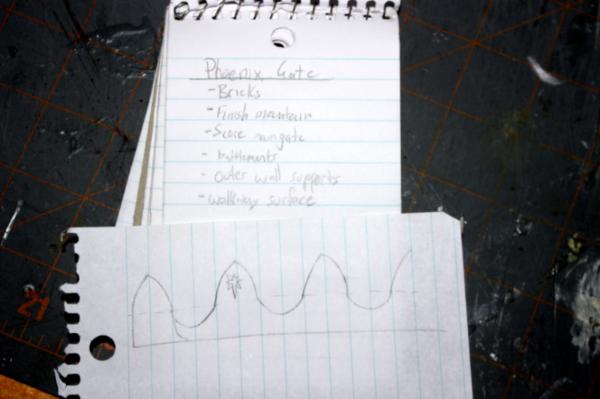 Phoenix Gate
- Bricks
- Finish mountain
- Score main gate
- battlements
- outer wall supports
- walkway surface
21